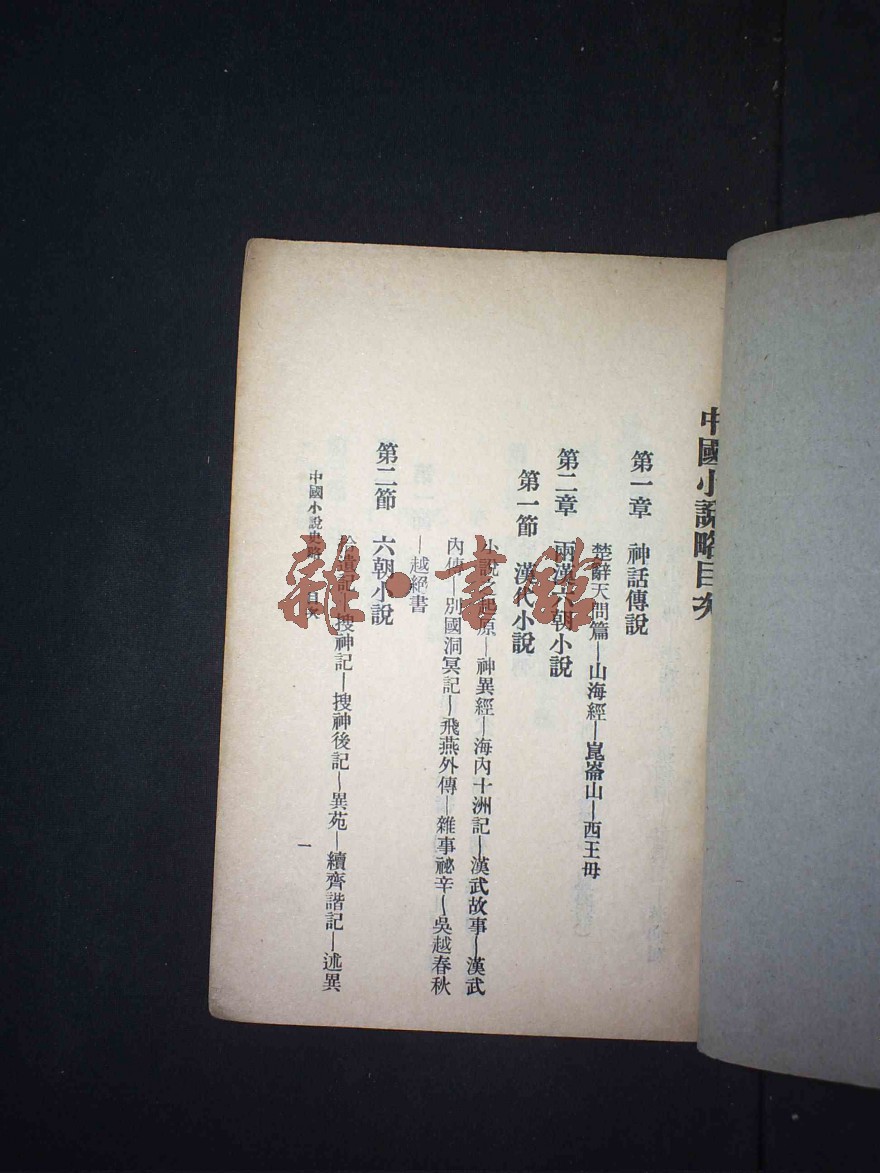 中國小說略目次
第一章 神話傳說
楚辭天問篇—山海經—崑崙山—西王母
第二章 兩漢六朝小說
第一節 漢代小說
小說之起原—神異經—海內十洲記—漢武故事—漢武
內傳—別國洞冥記—飛燕外傳—雜事祕辛—吳越春秋
—越絕書
第二節 六朝小說
拾遺記—搜神記—搜神後記—異苑—續齊諧記—述異
中國小說史略 目次
一
雜·書館